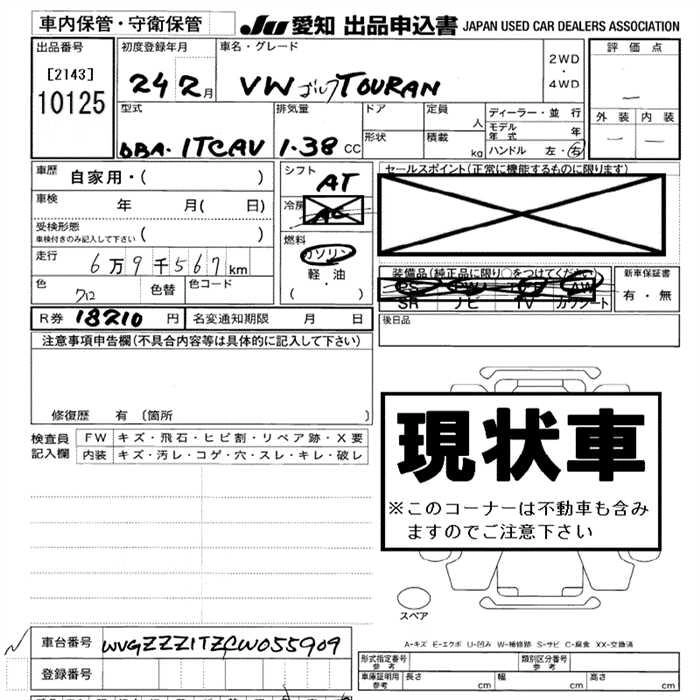 車内保管・守衛保管
JU 愛知 出品申込書 JAPAN USED CAR DEALERS ASSOCIATION
出品番号
[2143]
10125
初度登録年月
24 2月
車名・グレード
VW ゴルフTOURAN
2WD
・
4WD
評価点
—
外装 内装
— —
型式
DBA・1TCAV
排気量
1.38 CC
ドア
定員
人
形状
積載
kg
ディーラー・並行
モデル年式 年
ハンドル 左・右
車歴
自家用・( )
車検 年 月( 日)
受検形態
車検付きのみ記入して下さい ( )
走行
6万9千567km
色
色替
色コード
シフト
AT
冷房
AC
燃料
ガソリン
軽・油
( ・ )
セールスポイント(正常に機能するものに限ります)
装備品(純正品に限り○をつけてください)
PS PW AW
SR ナビ TV カワシート
新車保証書
有・無
後日品
R券 18210 円
名変通知期限 月 日
注意事項申告欄(不具合内容等は具体的に記入して下さい)
修復歴 有 〔箇所 〕
検査員記入欄
FW キズ・飛石・ヒビ割・リペア跡・X要
内装 キズ・汚レ・コゲ・穴・スレ・キレ・破レ
現状車
※このコーナーは不動車も含み
ますのでご注意下さい
スペア
A-キズ E-エクボ U-凹み W-補修跡 S-サビ C-腐食 XX-交換済
車台番号
WVGZZZ1TZCW055909
登録番号
形式指定番号
参考
類別区分番号
参考
車庫証明用
参考
長さ cm 幅 cm 高さ cm